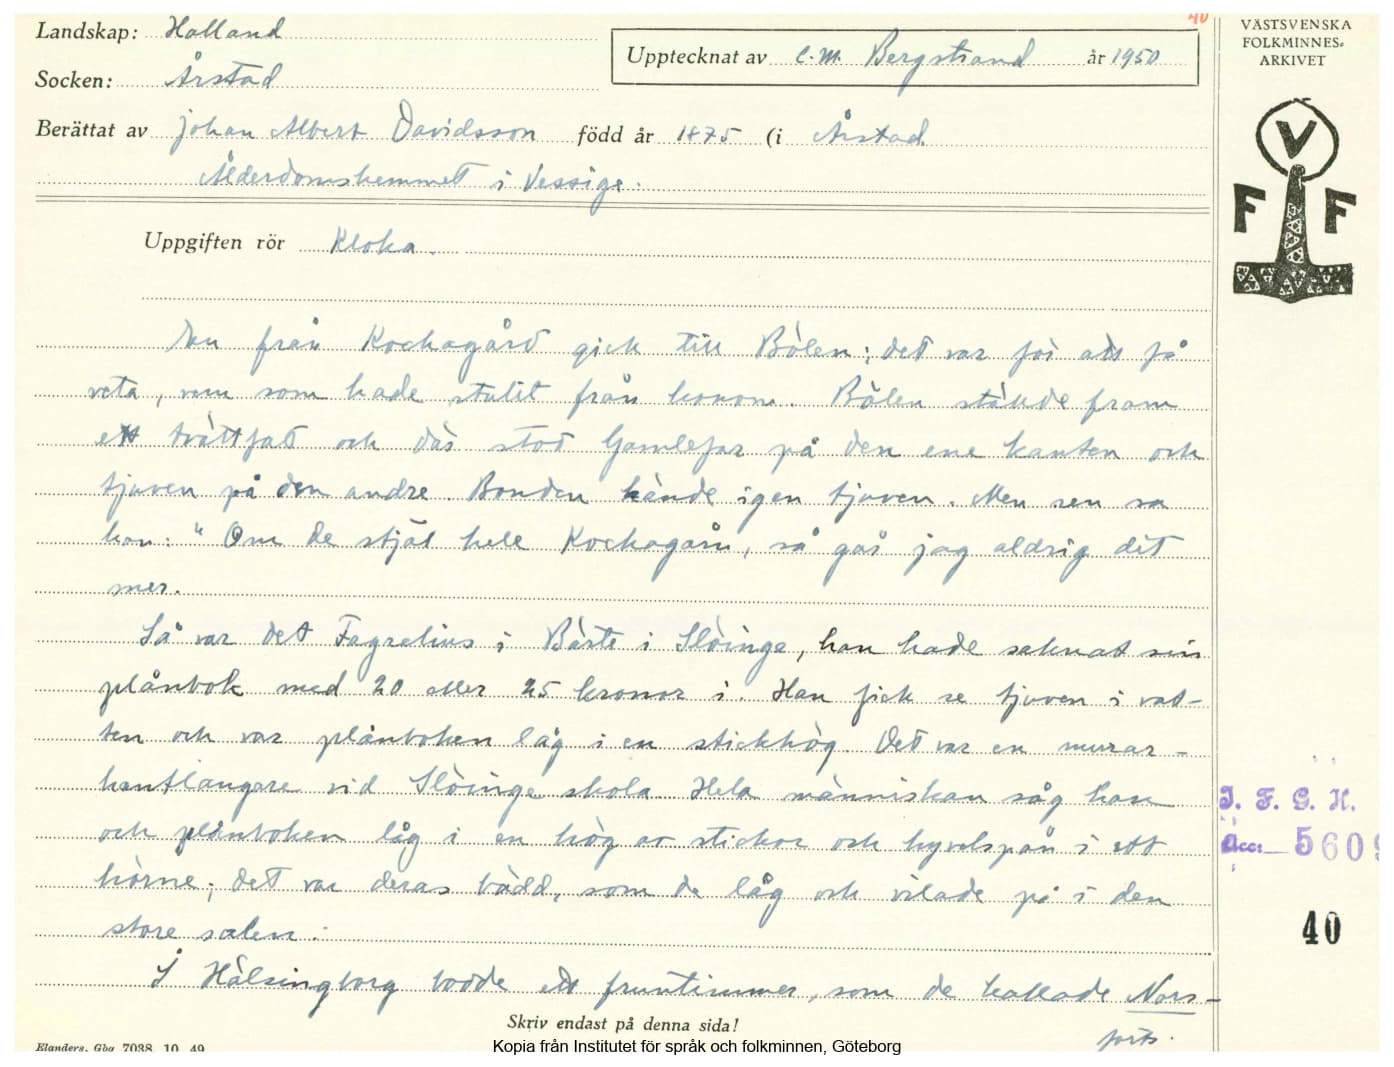 40
Landskap: Halland
Upptecknat av C.M. Bergstrand år 1950
VÄSTSVENSKA
FOLKMINNES-
ARKIVET
Socken: Årstad
Berättat av Johan Albert Davidsson född år 1875 (i Årstad.
Ålderdomshemmet i Vessige.
V
F F
Uppgiften rör Kloka.
En från Kockagård gick till Bölen; det var för att få
veta, vem som hade stulit från honom. Bölen ställde fram
ett tvättfat och där stod Gamlefar på den ene kanten och
tjuven på den andre. Bonden kände igen tjuven. Men sen sa
han: "Om de stjäl hele Kockagårn, så går jag aldrig dit
mer.
Så var det Fagrelius i Bärte i Slöinge, han hade saknat sin
plånbok med 20 eller 25 kronor i. Han fick se tjuven i vat-
ten och var plånboken låg i en stickhög. Det var en murar-
hantlangare vid Slöinge skola. Hela människan såg han
och plånboken låg i en hög av stickor och hyvelspån i ett
hörne; det var deras bädd, som de låg och vilade på i den
store salen.
I Hälsingborg bodde ett fruntimmer, som de kallade Nors-
forts.
J. F. G. H.
Acc: 5609
40
Skriv endast på denna sida!
Elanders, Gbg 7038. 10. 49
Kopia från Institutet för språk och folkminnen, Göteborg